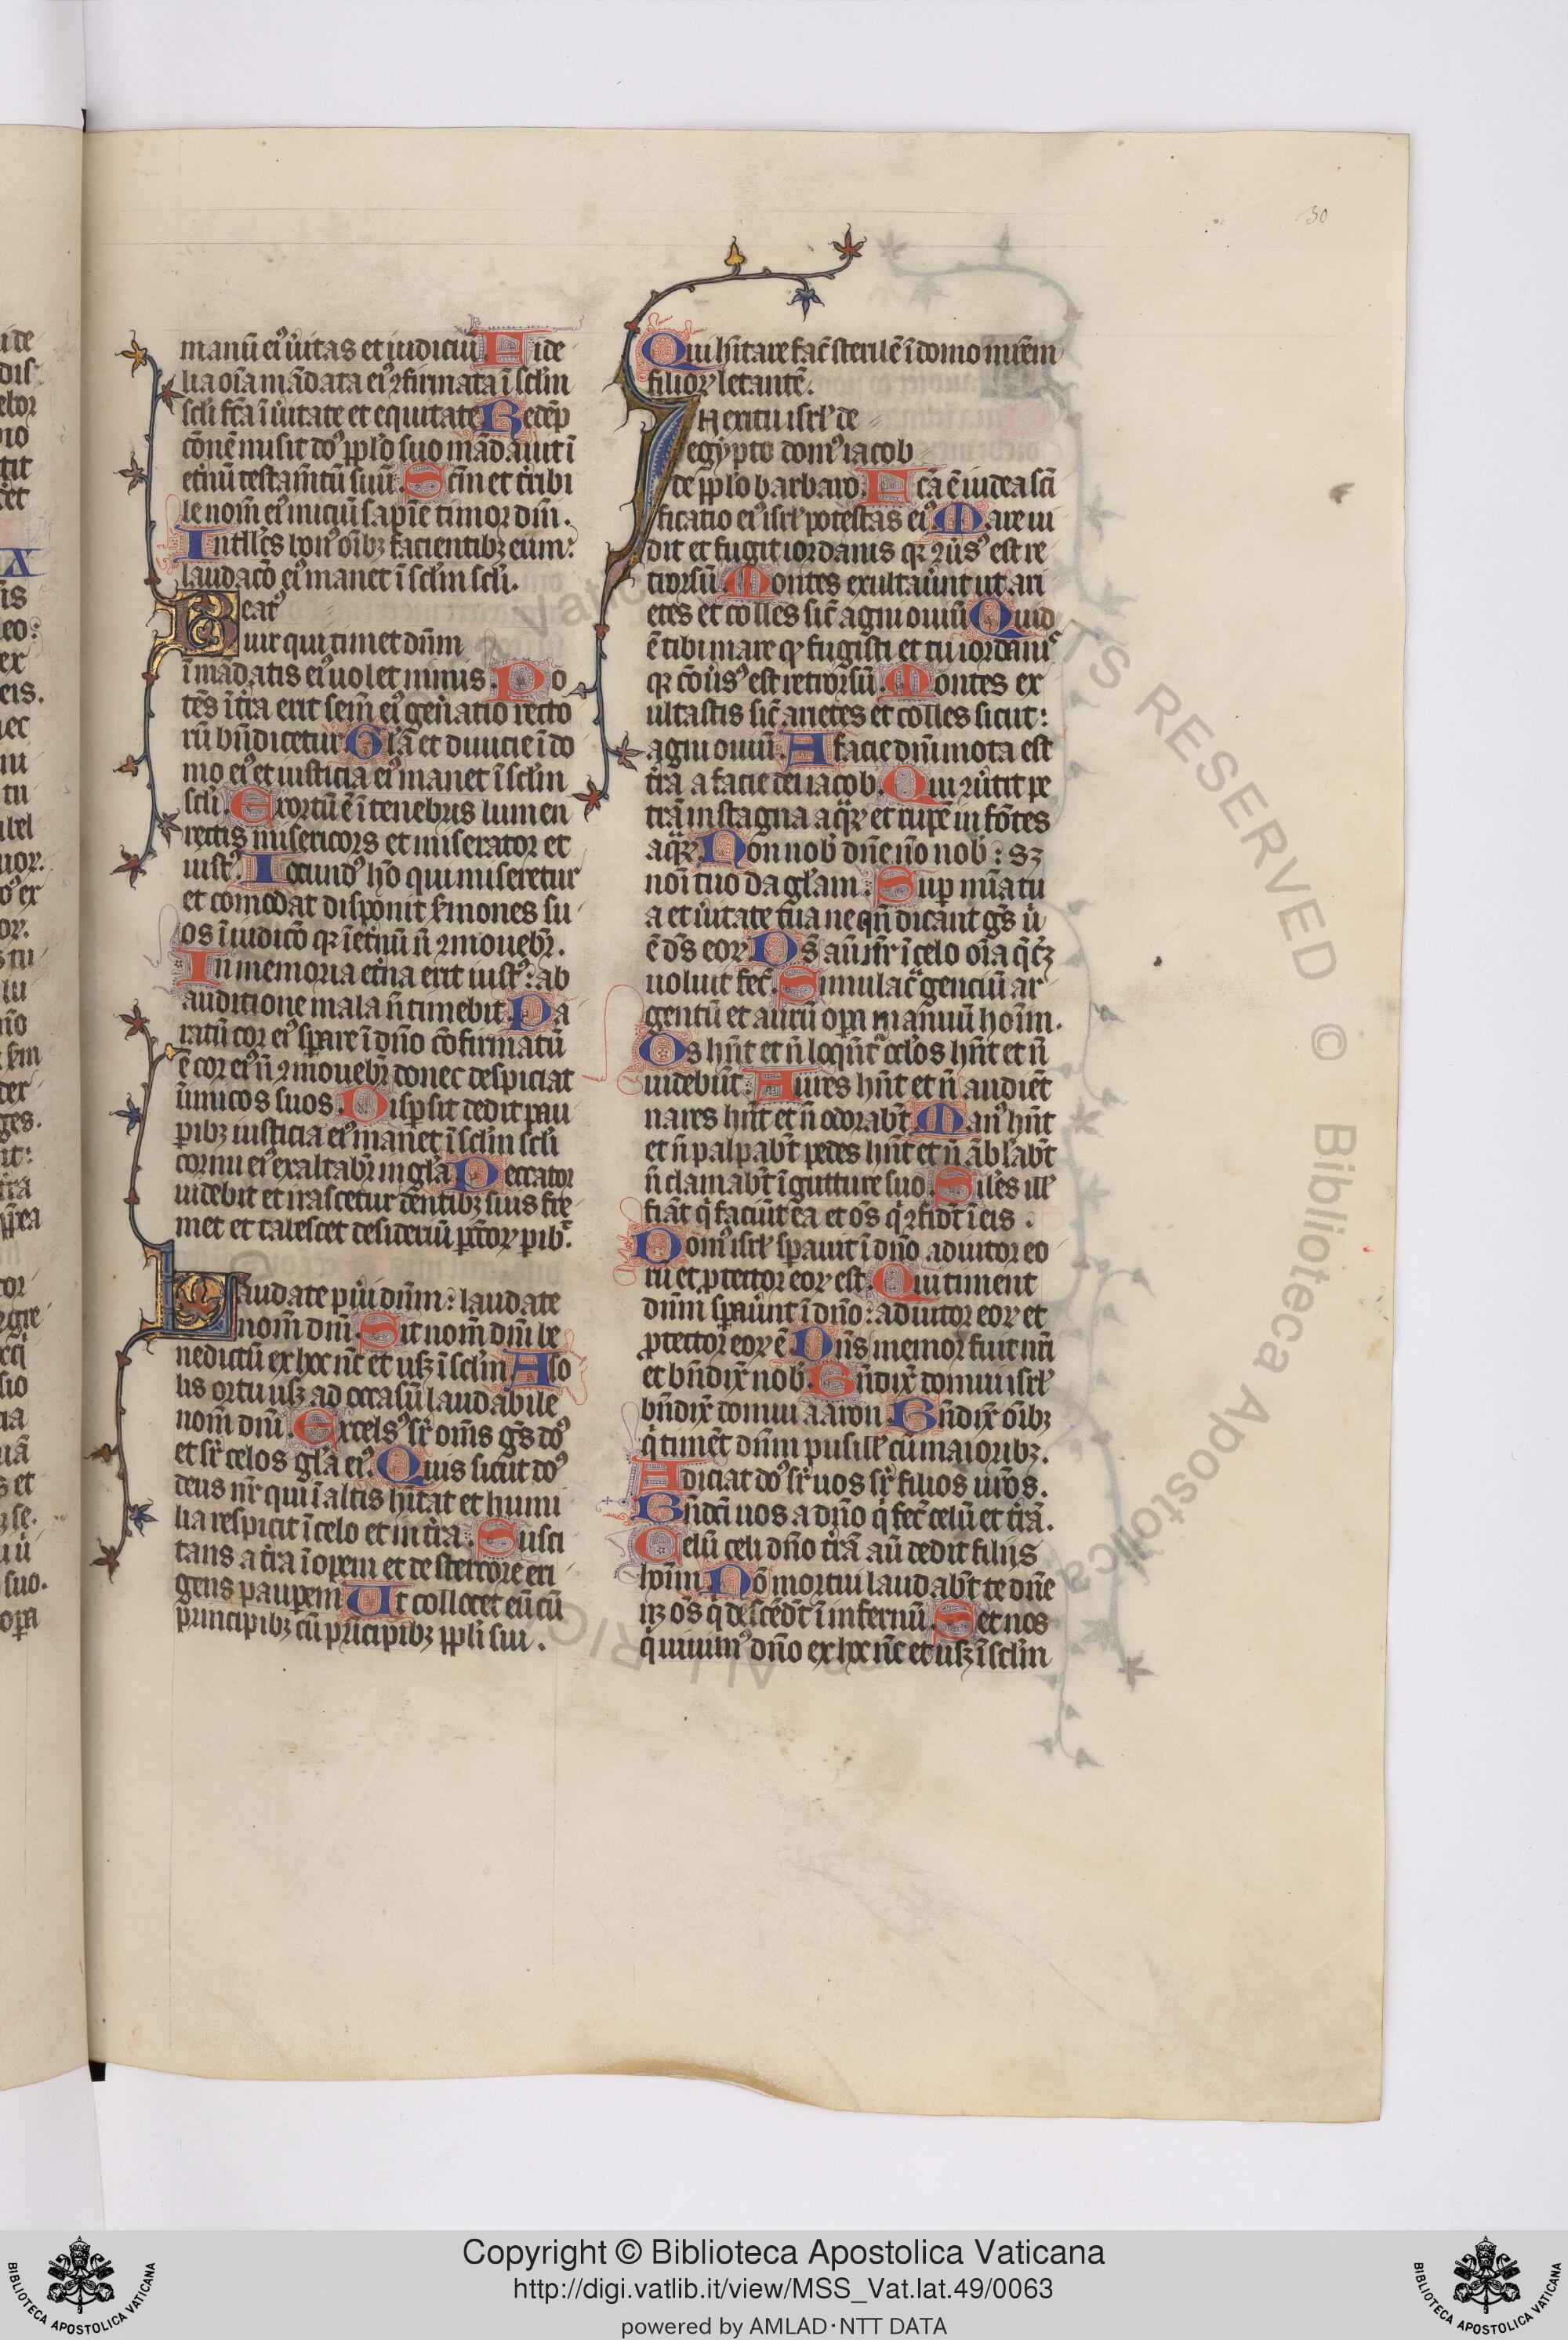 30
manū eiꝰ u̇itas et iudiciū Fide
lia oīa mādata eiꝰ ꝯfirmata ī sclm̄
scl̄i fc̄a ī u̇itate et equitate Redēp
cōnē misit dn̄s ppl̄o suo mādauit ī
et̉nū testam̄tū suū. Scm̄ et t̉ribi
le nom̄ eiꝰ iniciū sapīe timor dn̄i.
Intll̄cs bonꝰ oībꝫ facientibꝫ eum:
laudacō eiꝰ manet ī sclm̄ scl̄i.
Beatꝰ
uir qui timet dn̄m
ī mādatis eiꝰ uolet nimis. Po
tēs ī t̉ra erit sem̄ eiꝰ gen̉atio recto
rū bn̄dicetur Glā et diuicie ī do
mo eiꝰ et iusticia eiꝰ manet ī sclm̄
scl̄i. Exortū ē ī tenebris lumen
rectis misericors et miserator et
iustꝰ. Iocundꝰ hō qui miseretur
et comodat disponit s̉mones su
os ī iudicō qꝛ ī et̉nū n̄ ꝯmouebr̄.
In memoria et̉na erit iustꝰ: ab
auditione mala n̄ timebit. Pa
ratū cor eiꝰ sꝑare ī dn̄o cōfirmatū
ē cor eiꝰ n̄ ꝯmouebr̄ donec despiciat
inimicos suos. Disꝑsit dedit pau
ꝑibꝫ iusticia eiꝰ manet ī sclm̄ scl̄i
cornu eiꝰ exaltabr̄ in glā Peccator
uidebit et irascetur dentibꝫ suis fre
met et tabescet desideriū pc̄toꝝ ꝑib̄.
Laudate pủi dn̄m: laudate
nom̄ dn̄i. Sit nom̄ dn̄i be
nedictū ex hoc nc̄ et usꝫ ī sclm̄ A so
lis ortu usꝫ ad occasū laudabile
nom̄ dn̄i. Excelsꝰ sr̄ om̄s gn̄s dn̄s
et sr̄ celos glā eiꝰ. Quis sicut dn̄s
deus nr̄ qui ī altis hītat et humi
lia respicit ī celo et in t̉ra. Susci
tans a t̉ra īopem et de stercore eri
gens pauꝑem Ut collocet eū cū
principibꝫ cū prīcipibꝫ ppl̄i sui.
Qui hītare fac̄ sterilē ī domo mr̄em
filioꝝ letantē.
In exitu isrl̄ de
egypto domꝰ iacob
de ppl̄o barbaro. Fcā ē iudea scī
ficatio eiꝰ isrl̄ potestas eiꝰ Mare ui
dit et fugit iordanis ꝯủsꝰ est re
trorsū. Montes exultaủunt ut ari
etes et colles sic̄ agni ouiū Quid
ē tibi mare qꝛ fugisti et tu iordanis
qꝛ cōủsꝰ est retrorsū. Montes ex
ultastis sic̄ arietes et colles sicut:
agni ouiū. A facie dn̄i mota est
t̉ra a facie dei iacob. Qui ꝯủtit pe
trā in stagna aqꝝ et rupē in fōtes
aqꝝ. Non nob̄ dn̄e nō nob̄: sꝫ
noī tuo da glam̄. Suꝑ mīa tu
a et ủitate tua neqn̄ dicant gn̄s ủ
ē ds̄ eoꝝ Ds̄ aū nr̄ ī celo oīa q̄cꝫ
uoluit fec̄. Simulacᷓ genciū ar
gentū et aurū oꝑa manuū hoīm.
Os hn̄t et n̄ loqn̄t᷑ ocl̄os hn̄t et n̄
uidebūt: Aures hn̄t et n̄ audiēt
nares hn̄t et n̄ odorabt̄ Manꝰ hn̄t
et n̄ palpabt̄ pedes hn̄t et n̄ ābl̄abt̄
n̄ clamabt̄ ī gutture suo. Sil̄es ill̄
fiāt q̇ faciūt ea et os̄ q̇ ꝯfidt̄ ī eis.
Domꝰ isrl̄ sꝑauit ī dn̄o adiutor eo
rū et ꝓtector eoꝝ est. Qui timent
dn̄m sꝑaủunt ī dn̄o: adiutor eoꝝ et
ꝓtector eoꝝ ē Dn̄s memor fuit nr̄i
et bn̄dix̄ nob̄. Bn̄dix̄ domui isrl̄
bn̄dix̄ domui aaron. Bn̄dix̄ oībꝫ
q̇ timēt dn̄m pusill̄ cū maioribꝫ.
Adiciat dn̄s sr̄ uos sr̄ filios uros.
Bn̄dcī uos a dn̄o q̇ fec̄ celū et t̉rā.
Celū celi dn̄o t̉rā aū dedit filijs
hoīm Nō mortui laudabt̄ te dn̄e
nꝫ os̄ q̇ descēdt̄ ī infernū. Set nos
q̇ uiuimꝰ dn̄o ex hoc nc̄ et usꝫ ī sclm̄
Copyright © Biblioteca Apostolica Vaticana
http://digi.vatlib.it/view/MSS_Vat.lat.49/0063
powered by AMLAD·NTT DATA
BIBLIOTECA APOSTOLICA VATICANA
BIBLIOTECA APOSTOLICA VATICANA